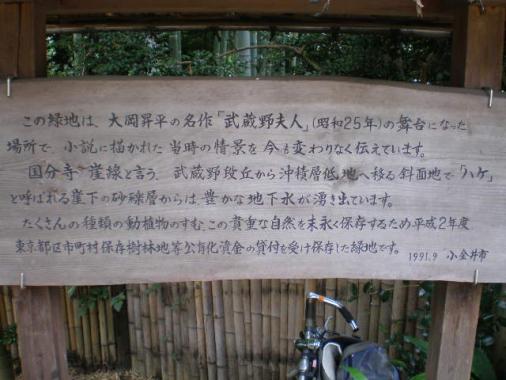 この緑地は、大岡昇平の名作「武蔵野夫人」(昭和25年)の舞台になった
場所で、小説に描かれた当時の情景を今も変わりなく伝えています。
国分寺崖線と言う、武蔵野段丘から沖積層低地へ移る斜面地で「ハケ」
と呼ばれる崖下の砂礫層からは、豊かな地下水が湧き出ています。
たくさんの種類の動植物のすむ、この貴重な自然を末永く保存するため平成2年度
東京都区市町村保存樹林地等公有化資金の貸付を受け保存した緑地です。 1991.9 小金井市